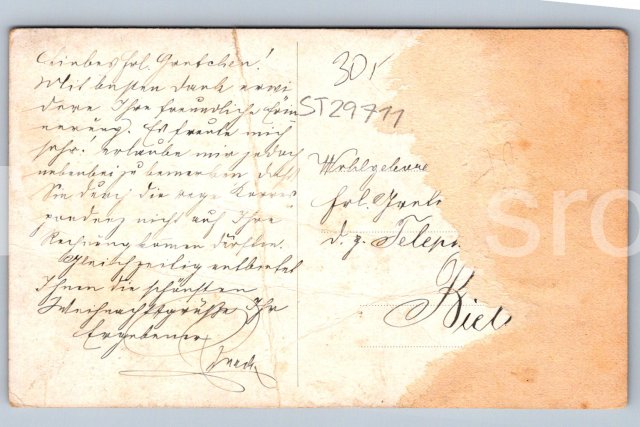 Liebes Frl. Gretchen!
Mit besten Dank erwi
dere Ihre freundliche Erin
nerung. Es freute mich
sehr! erlaube mir jedoch
nebenbei zu bemerken, daß
Sie durch die rege Korres
pondenz nicht auf Ihre
Rechnung kommen dürften.
Gleichzeitig entbietet
Ihnen die schönsten
Weihnachtsgrüße Ihr
Ergebener
30,-
ST29711
Wohlgeborene
Frl. Grete
d. z. Teleph
Kiel
sro